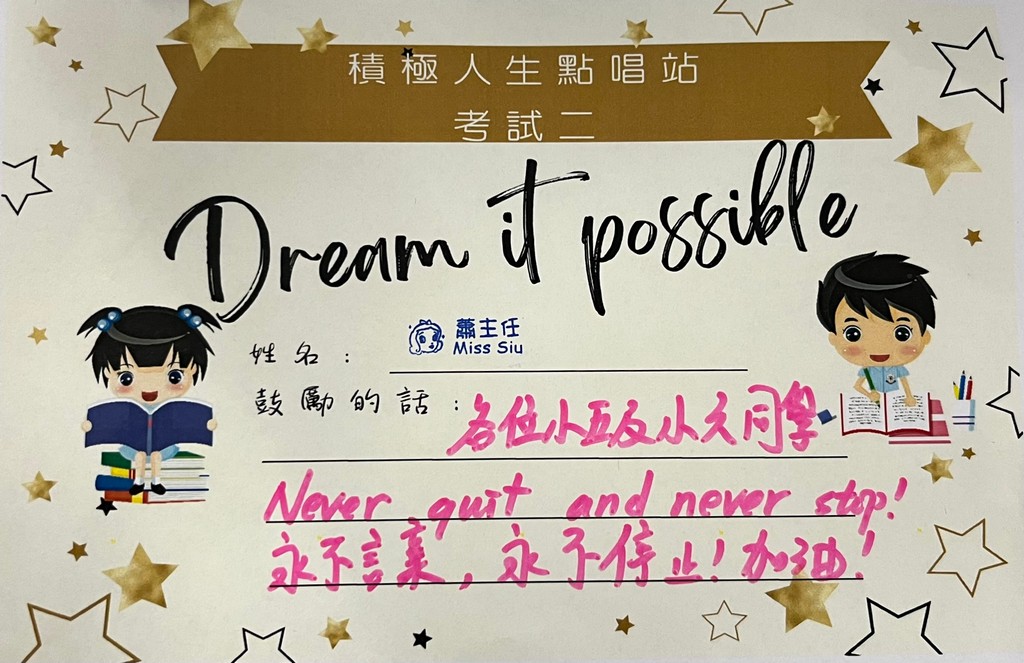 積極人生點唱站
考試二
Dream it possible
姓名： 蕭主任
Miss Siu
鼓勵的話： 各位小五及小六同學
Never quit and never stop!
永不言棄，永不停止！加油！